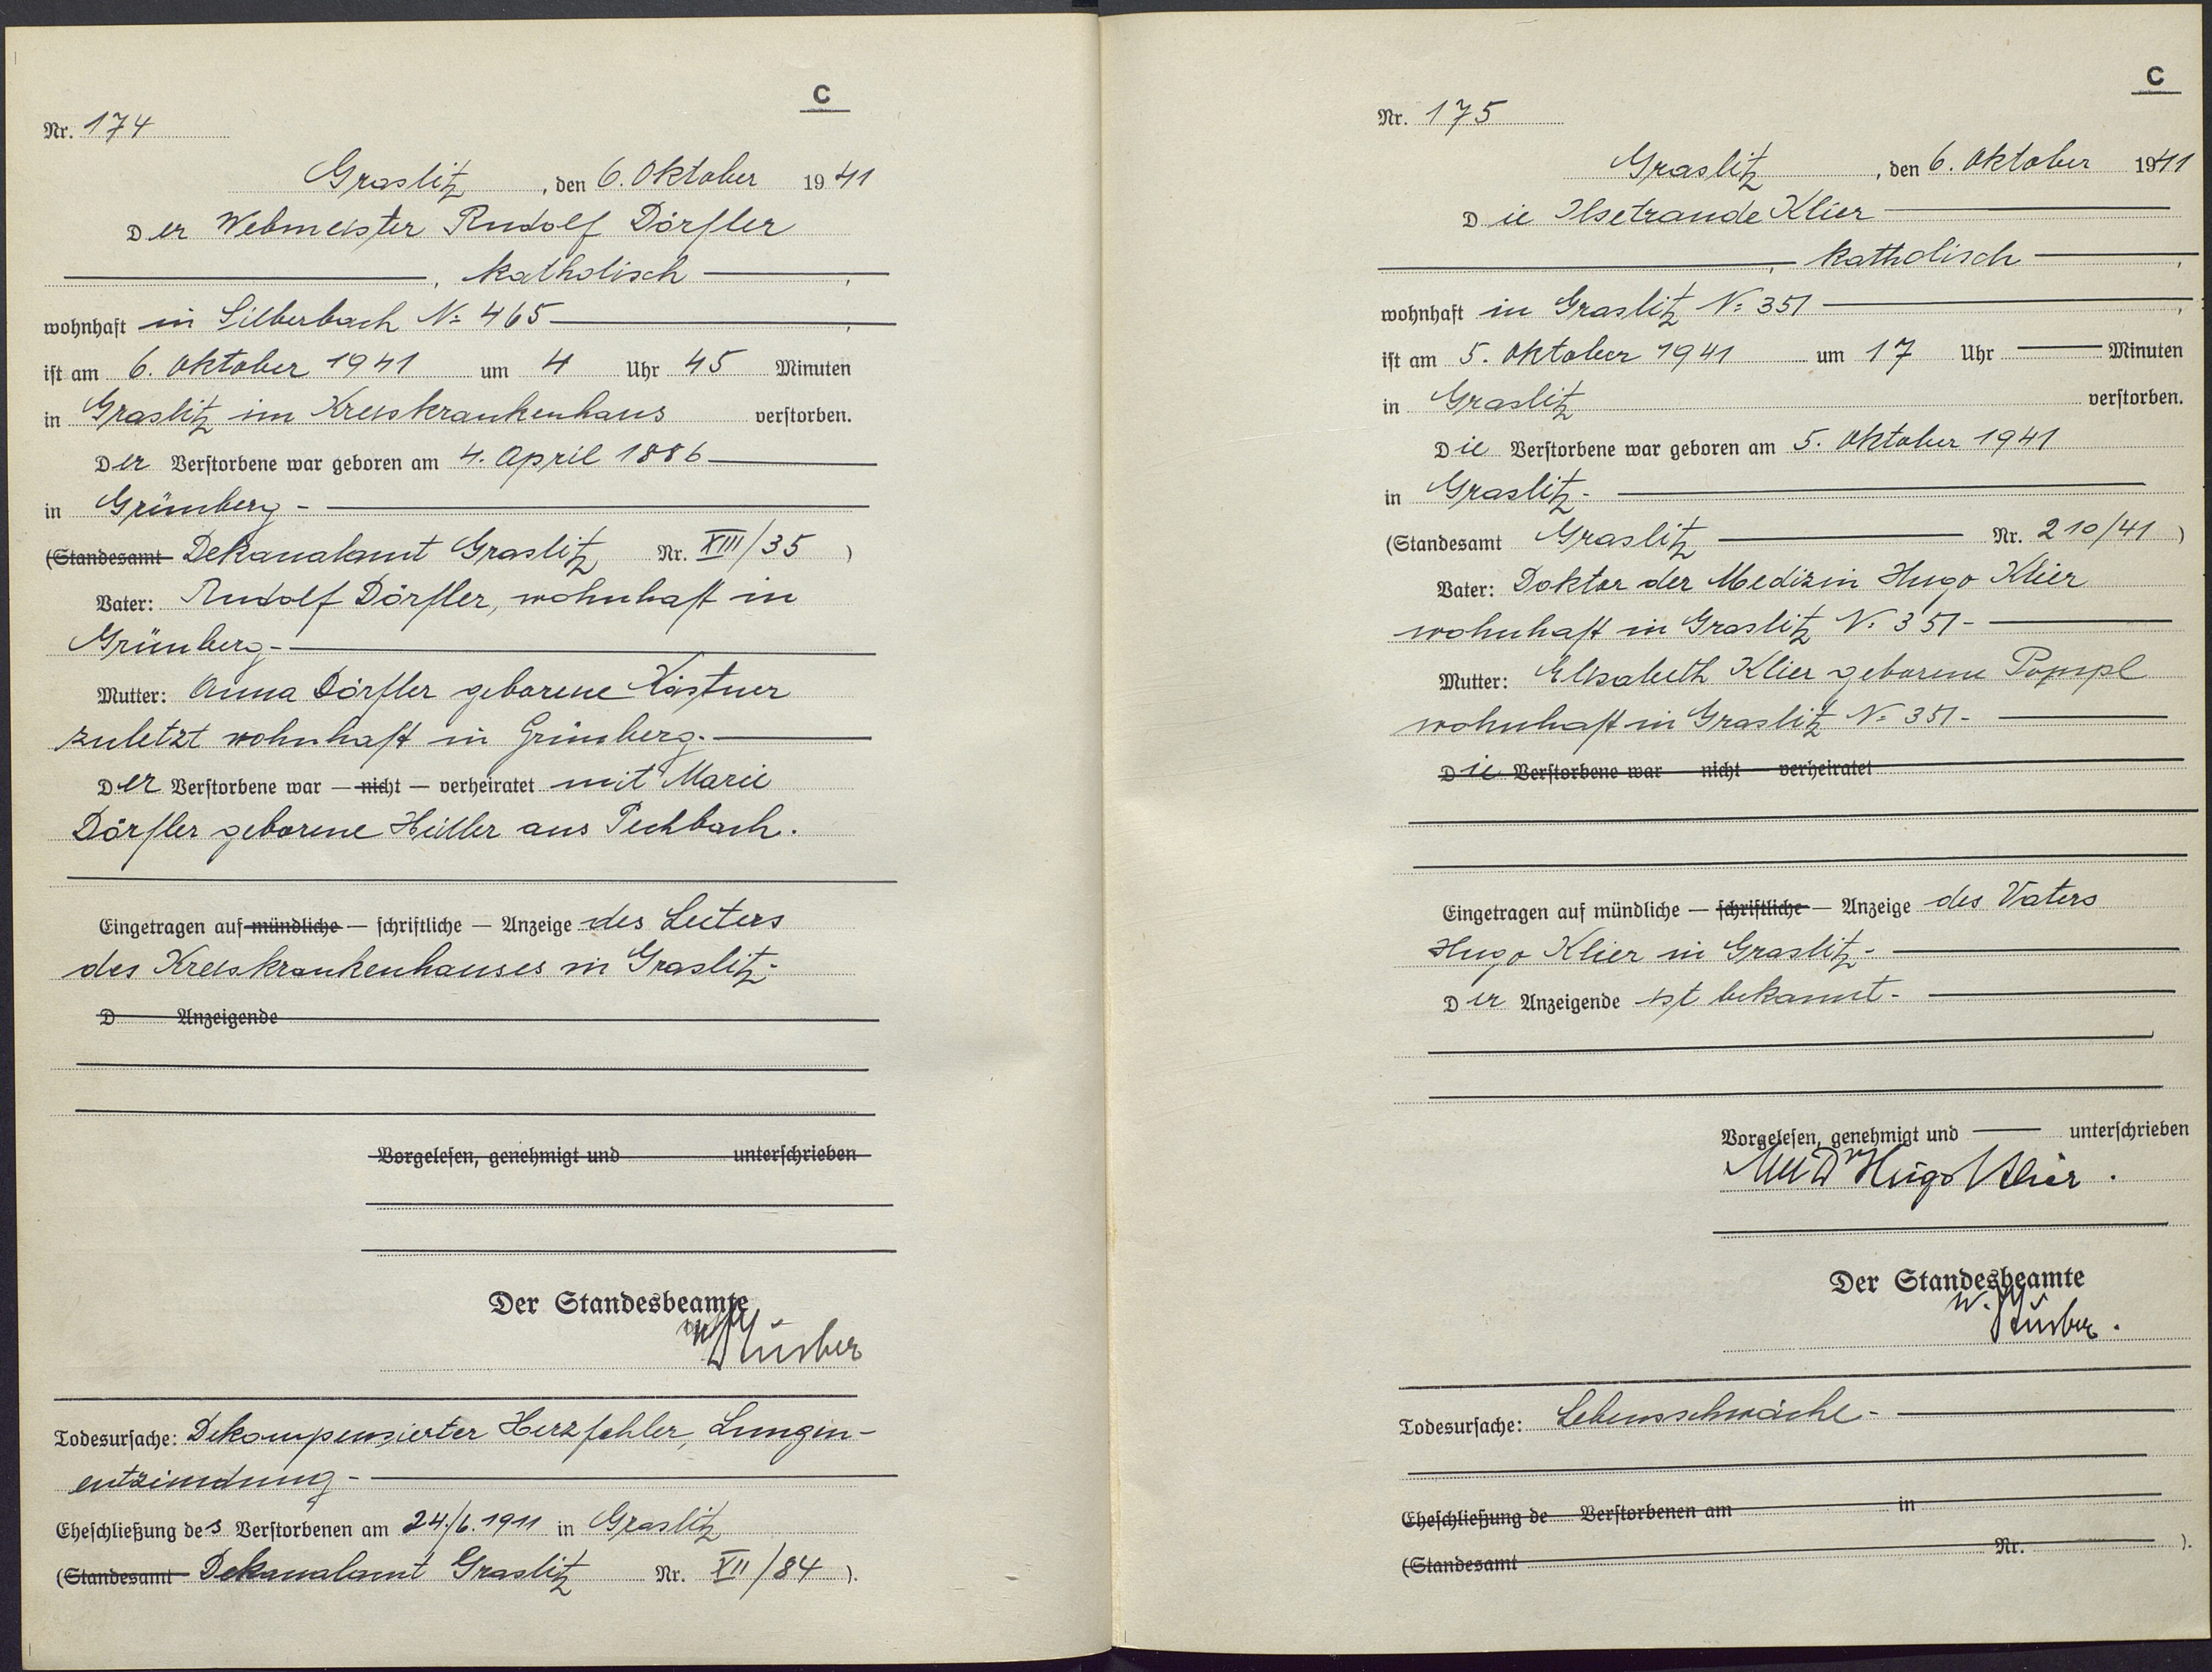 C
Nr. 174
Graslitz, den 6. Oktober 1941
Der Webmeister Rudolf Dörfler
, katholisch ,
wohnhaft in Silberbach N: 465 ,
ist am 6. Oktober 1941 um 4 Uhr 45 Minuten
in Graslitz im Kreiskrankenhaus verstorben.
Der Verstorbene war geboren am 4. April 1886
in Grünberg -
(Standesamt Dekanalamt Graslitz Nr. XIII/35 )
Vater: Rudolf Dörfler, wohnhaft in
Grünberg -
Mutter: Anna Dörfler geborene Köstner
zuletzt wohnhaft in Grünberg.
Der Verstorbene war — nicht — verheiratet mit Marie
Dörfler geborene Hüller aus Pechbach.
Eingetragen auf mündliche — schriftliche — Anzeige des Leiters
des Kreiskrankenhauses in Graslitz.
D Anzeigende
Vorgelesen, genehmigt und unterschrieben
Der Standesbeamte
Todesursache: Dekompensierter Herzfehler, Lungen-
entzündung -
Eheschließung des Verstorbenen am 24./6.1911 in Graslitz
(Standesamt Dekanalamt Graslitz Nr. XII/84 ).
C
Nr. 175
Graslitz, den 6. Oktober 1941
Die Ilsetraude Klier
, katholisch ,
wohnhaft in Graslitz N: 351 ,
ist am 5. Oktober 1941 um 17 Uhr — Minuten
in Graslitz verstorben.
Die Verstorbene war geboren am 5. Oktober 1941
in Graslitz -
(Standesamt Graslitz Nr. 210/41 )
Vater: Doktor der Medizin Hugo Klier
wohnhaft in Graslitz N: 351 -
Mutter: Elisabeth Klier geborene Pompl
wohnhaft in Graslitz N: 351 -
Die Verstorbene war — nicht — verheiratet
Eingetragen auf mündliche — schriftliche — Anzeige des Vaters
Hugo Klier in Graslitz -
Der Anzeigende ist bekannt -
Vorgelesen, genehmigt und — unterschrieben
MUDr Hugo Klier.
Der Standesbeamte
Todesursache: Lebensschwäche -
Eheschließung de Verstorbenen am in
(Standesamt Nr. ).